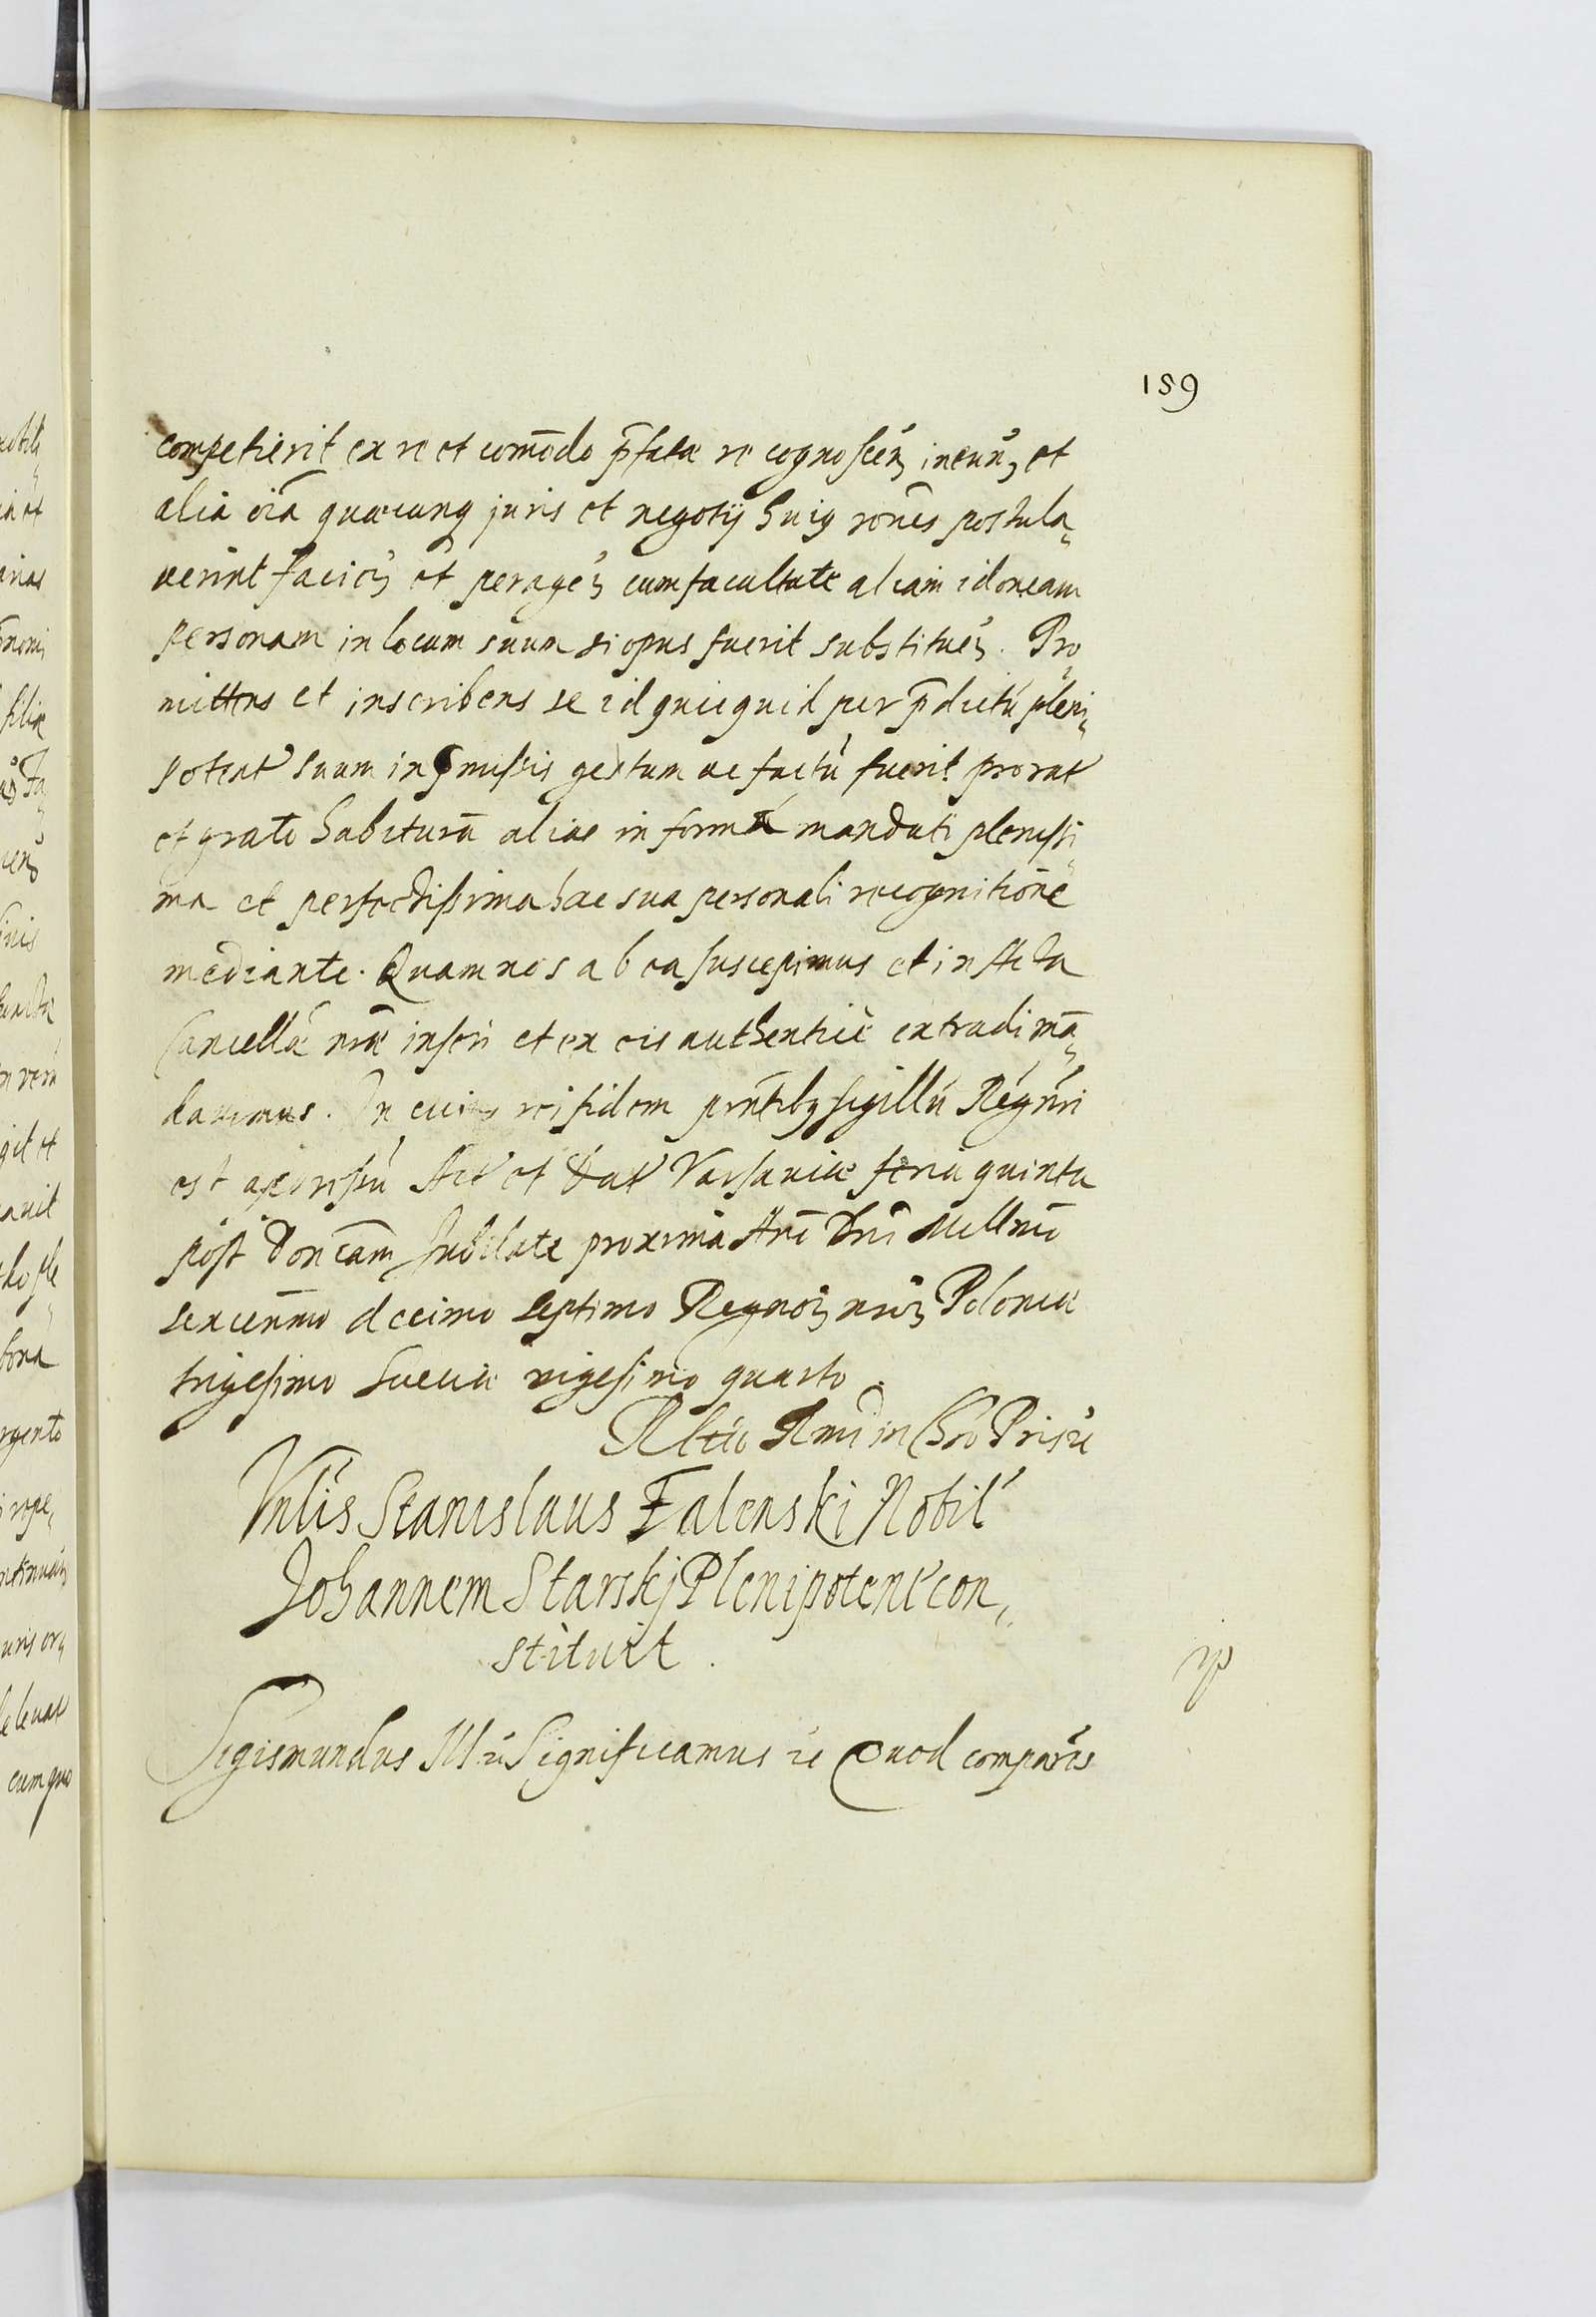 159
competierit ex re et com̄odo p̄fatæ recognoscen̄ ineun̄ et
alia oīa quæcunq juris et negotij huiq rōnes postula¬
verint facien̄ et peragen̄ cum facultate aliam idoneam
personam in locum suum si opus fuerit substituen̄. Pro¬
mittens et inscribens se id quicquid per p̄dictū pleni¬
potent suum in p̄missis gestum ac factū fuerit pro rat
et grato habiturā aliae in forma mandati plenissi¬
ma et perfectissima hac sua personali recognitione
mediante. Quam nos ab ea suscepimus et in Acta
Cancellæ nr̄æ inseri et ex eis authentice extradi mā¬
davimus. In cuius rei fidem pn̄tibq sigillū Regn̄ nr̄i
est Act et Dat Varsaviæ feria quinta
post Don̄cam Jubilate proxima An̄o Dn̄i Mill̄mo
sexcen̄mo decimo septimo Regnor̄ nr̄or̄ Poloniæ
trigesimo Sueciæ vigesimo quarto.
Rltio Rm̄i in Chr̄o Pris
Stanislaus Falenski Nobil
Johannem Starskj Plenipotent con¬
stituit.
Sigismundus III Significamus Quod comparēs